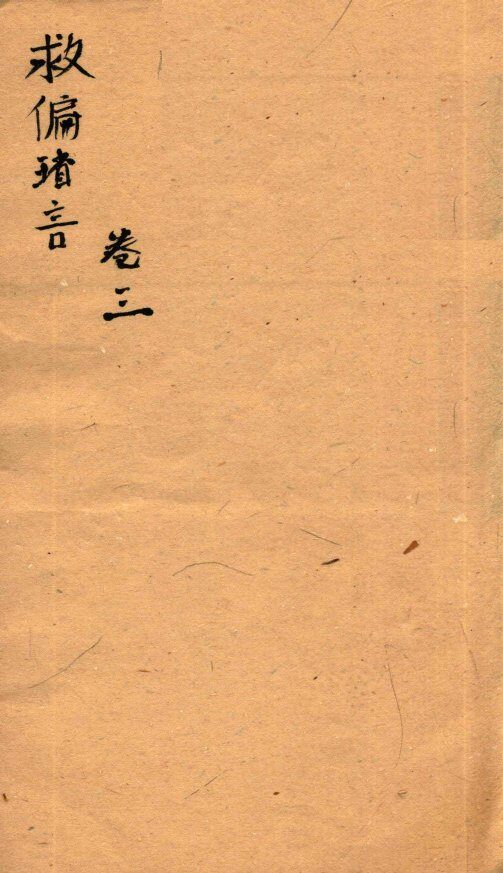 救偏瑣言
卷三